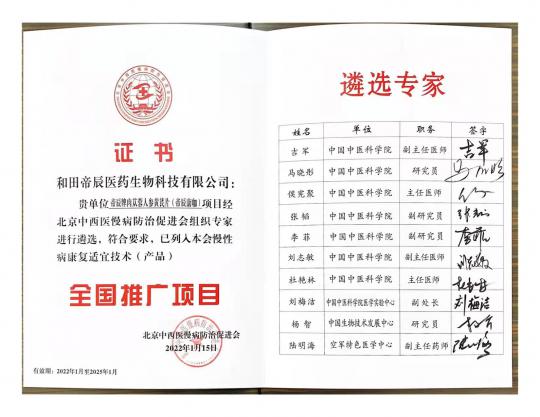 证书
和田帝辰医药生物科技有限公司：
贵单位帝辰牌肉苁蓉人参黄芪片（帝辰御咖）项目经
北京中西医慢病防治促进会组织专家
进行遴选，符合要求，已列入本会慢性
病康复适宜技术（产品）
全国推广项目
北京中西医慢病防治促进会
2022年1月15日
有效期：2022年1月至2025年1月
遴选专家
姓名 单位 职务 签字
吉军 中国中医科学院 副主任医师 吉军
马晓彤 中国中医科学院 研究员
侯宪聚 中国中医科学院 主任医师
张韬 中国中医科学院 副研究员
李菲 中国中医科学院 副研究员
刘志敏 中国中医科学院 副主任医师
杜艳林 中国中医科学院 主任医师
刘梅洁 中国中医科学院医学实验中心 副处长 刘梅洁
杨智 中国生物技术发展中心 研究员
陆明海 空军特色医学中心 副主任药师